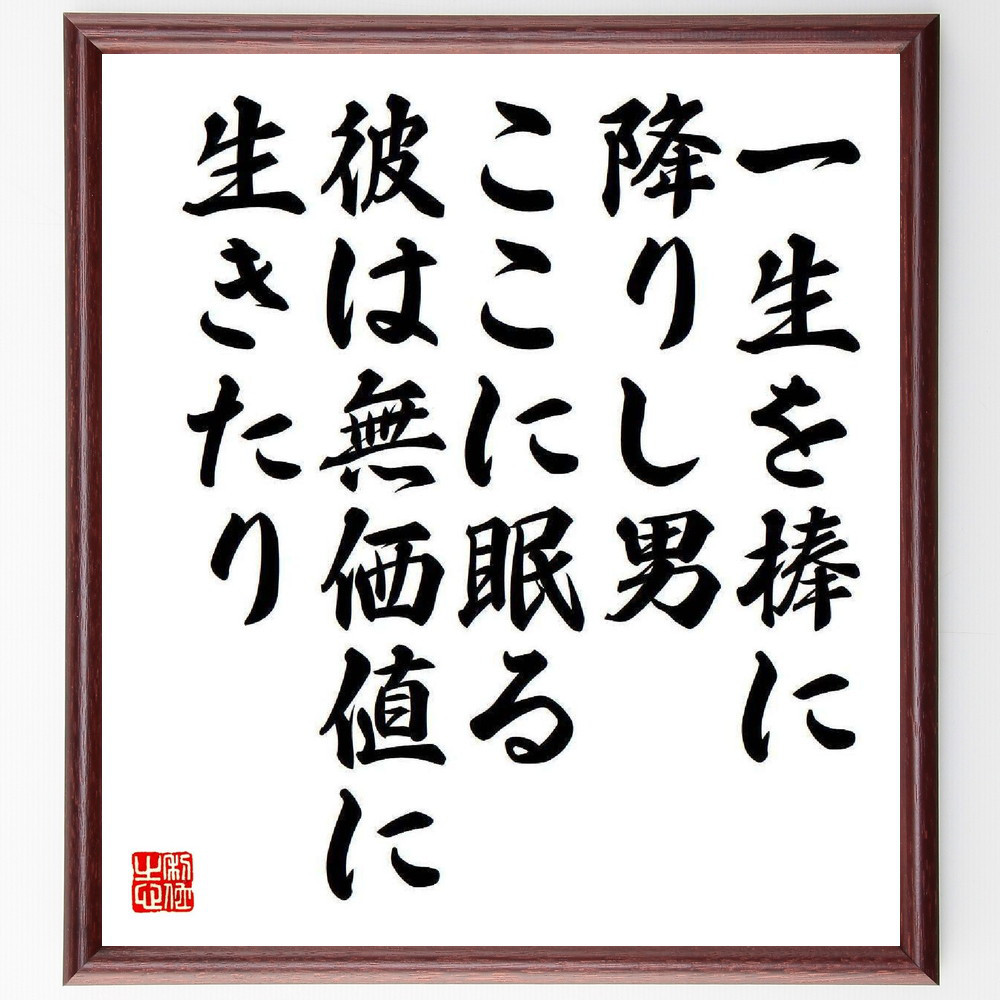 一生を棒に
降りし男
ここに眠る
彼は無価値に
生きたり